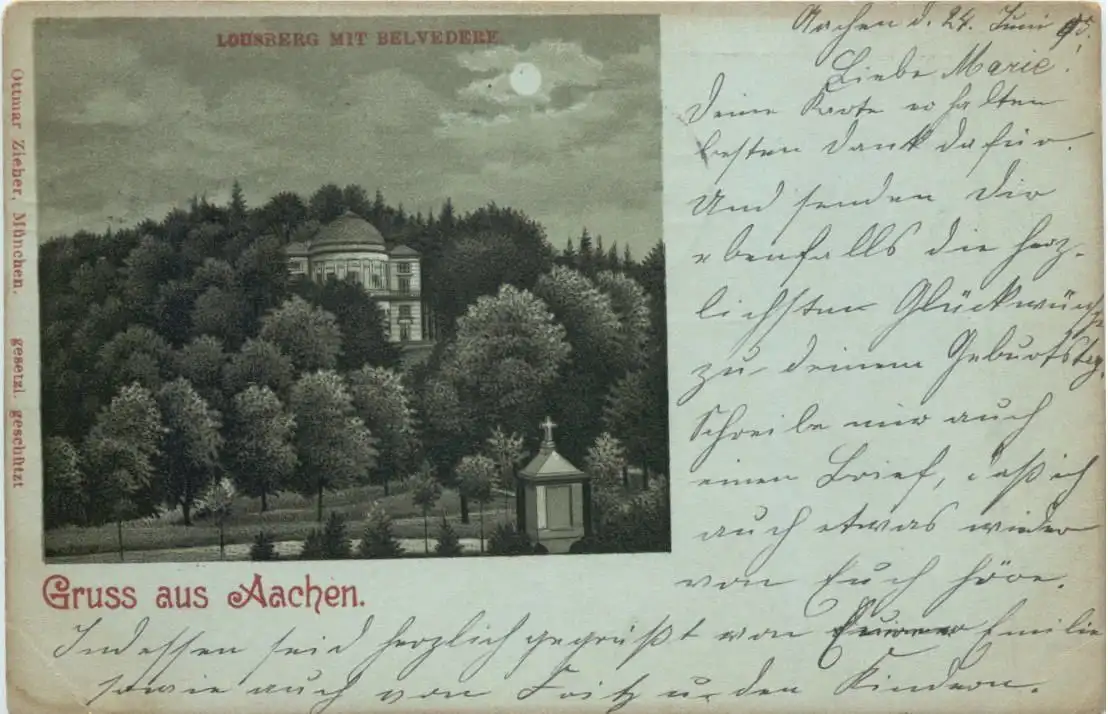 LOUSBERG MIT BELVEDERE.
Ottmar Zieher, München. gesetzl. geschützt
Aachen d. 24. Juni
Liebe Marie!
Deine Karte erhalten
besten Dank dafür.
Und senden Dir
ebenfalls die herz-
lichsten Glückwünsche
zu deinem Geburtstag.
Schreibe mir auch
einen Brief, daß ich
auch etwas wieder
von Euch höre.
Gruss aus Aachen.
Indessen seid herzlich gegrüßt von Emilie
sowie auch von Fritz u. den Kindern.